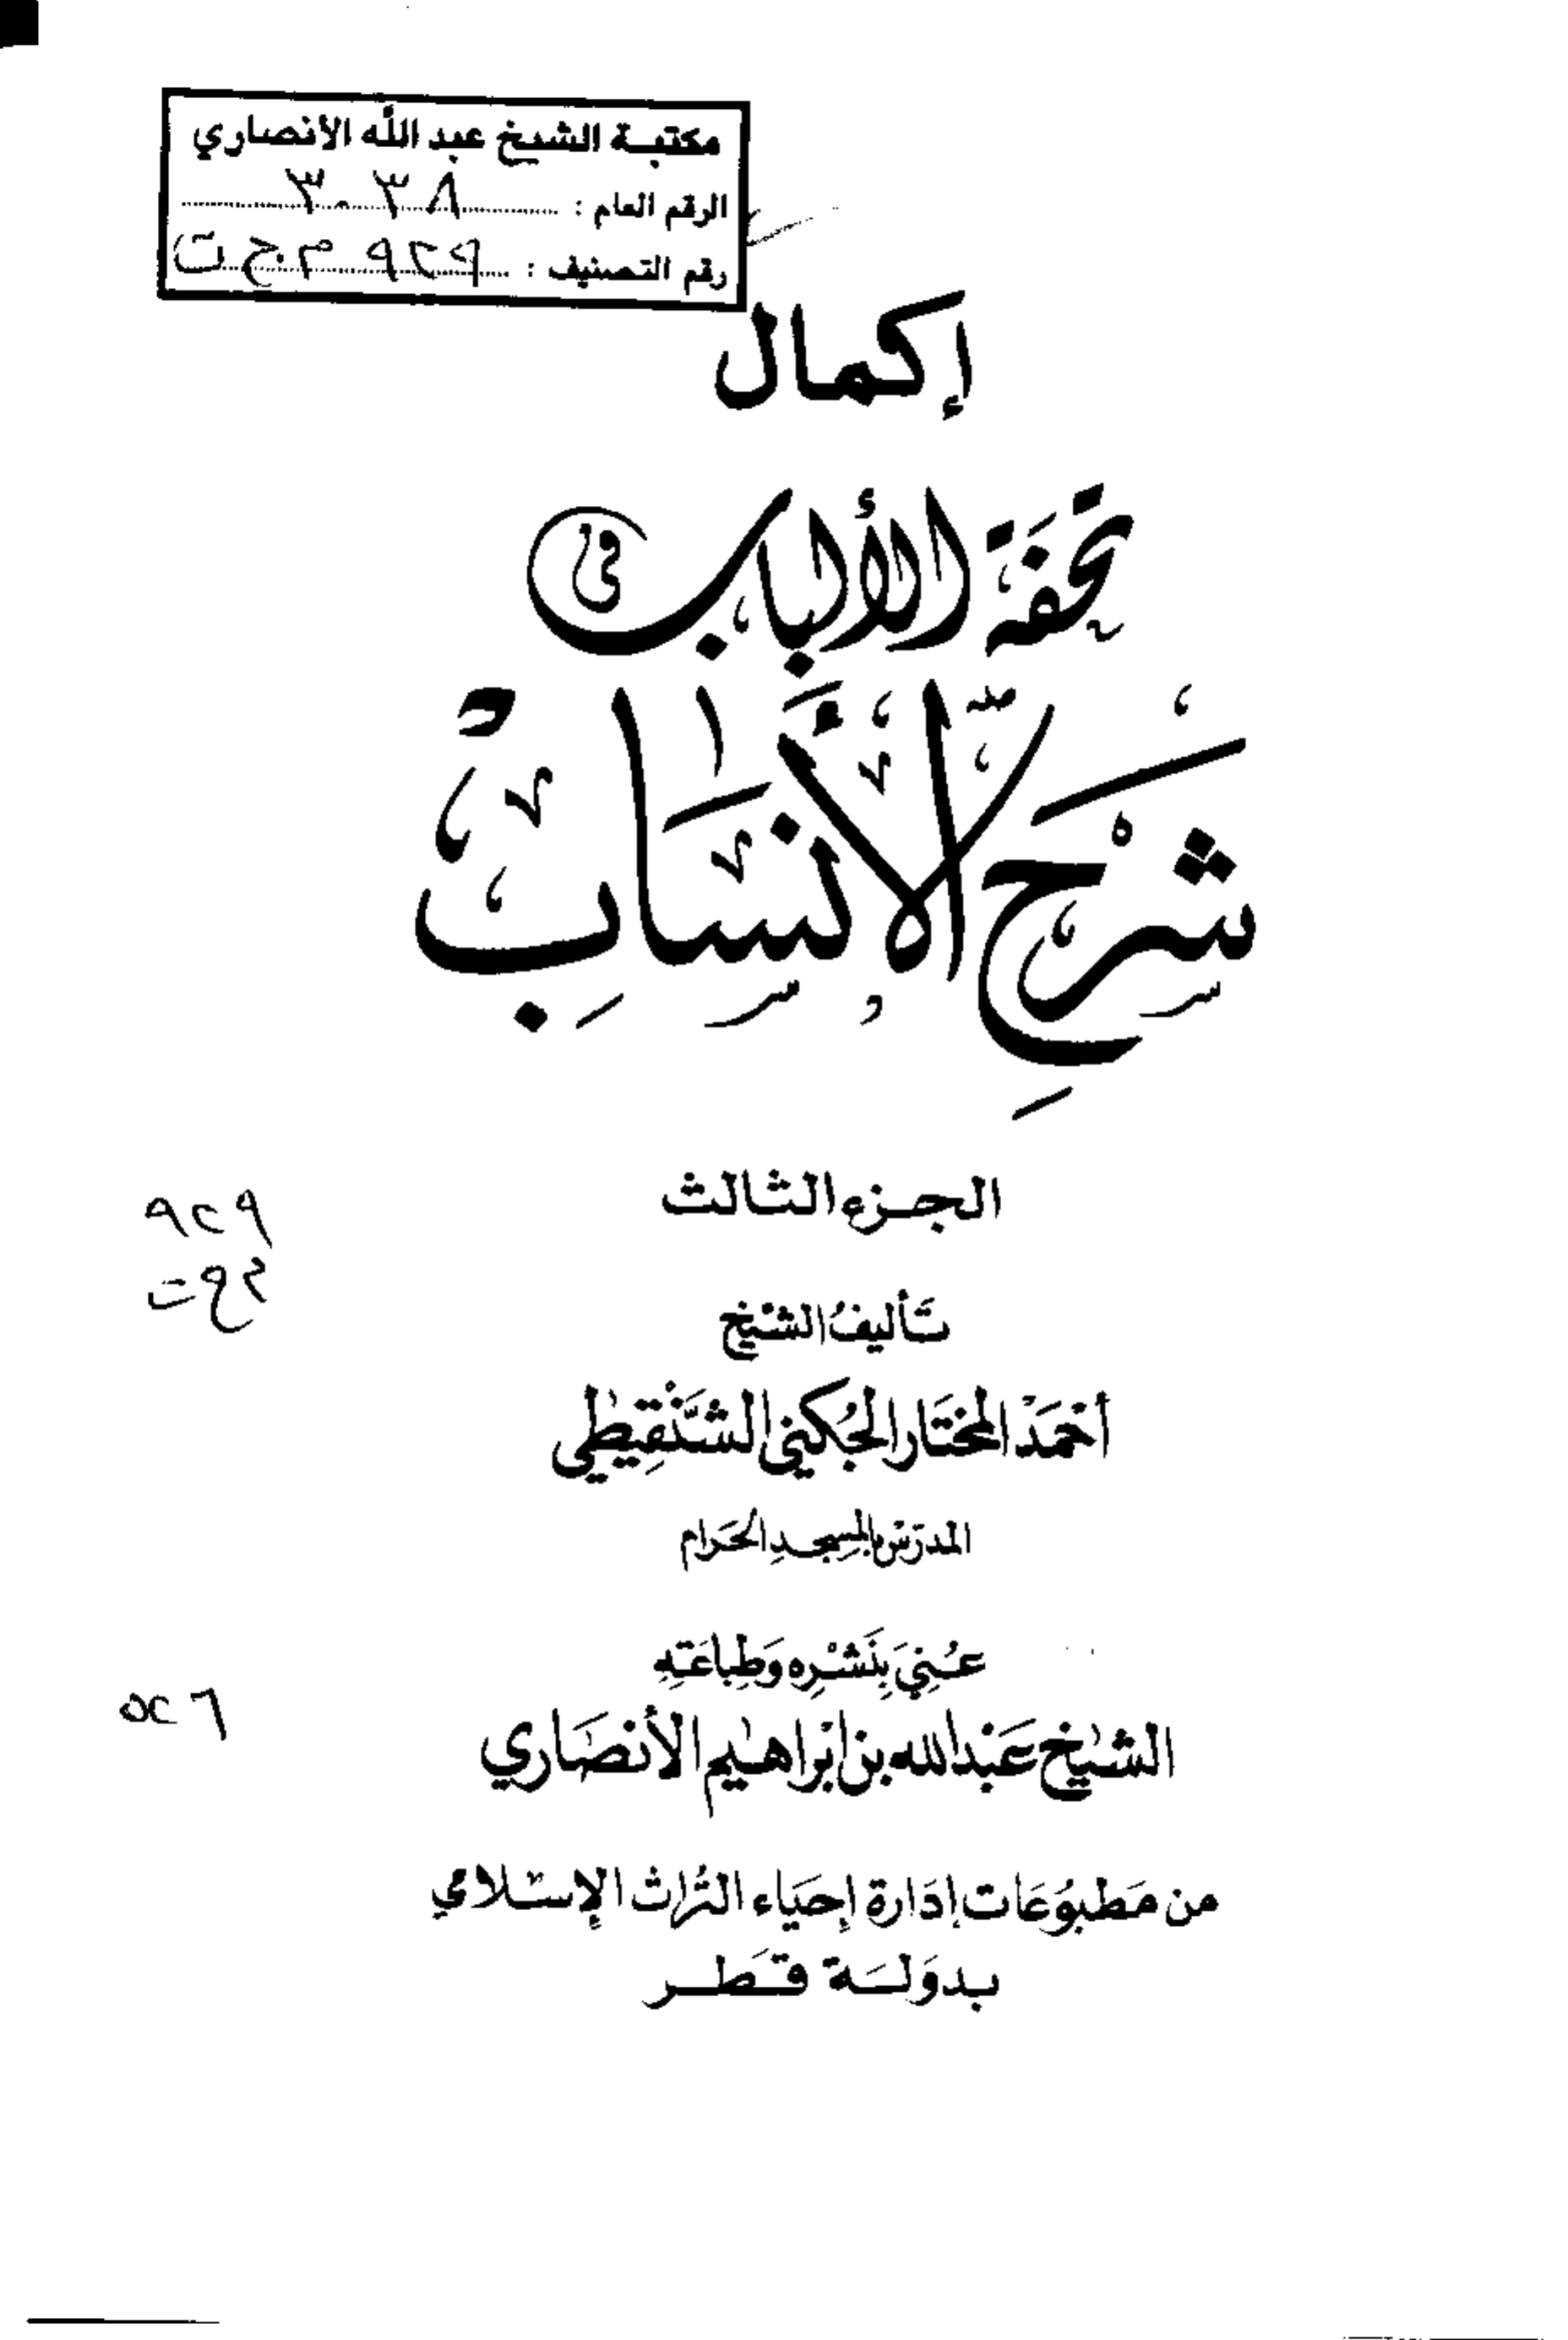 مكتبة الشيخ عبد الله الأنصاري
الرقم العام : ٣٠٣٨
رقم التصنيف : ٩٢٩ م.ج ت
إكمال
تحفة الألباب في
شَرْحِ الأَنْسَابِ
الجزء الثالث
٩٢٩
تأليفُ الشيخ
أحْمَدْ المختَار الجُكني الشَّنْقِيطي
المدرّسْ بالمسِجدِ الحَرام
عُنِيَ بِنَشْرِه وَطِباعَتِهِ
٥٢٦
الشيخ عَبْد الله بن ابْراهيم الأنصَاري
من مَطبوُعَات إدَارة إحيَاء التُراث الإسْلامي
بدوَلَة قَطر